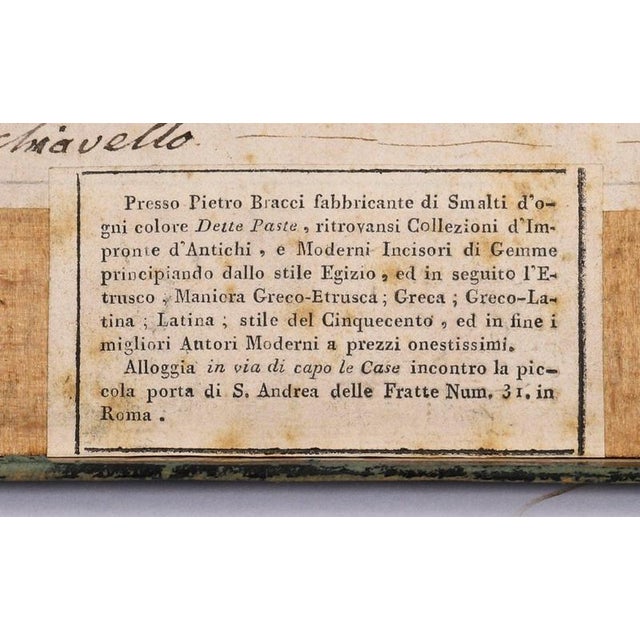 chiavello
Presso Pietro Bracci fabbricante di Smalti d'o-
gni colore Dette Paste, ritrovansi Collezioni d'Im-
pronte d'Antichi, e Moderni Incisori di Gemme
principiando dallo stile Egizio, ed in seguito l'E-
trusco, Maniera Greco-Etrusca; Greca; Greco-La-
tina; Latina; stile del Cinquecento, ed in fine i
migliori Autori Moderni a prezzi onestissimi.
Alloggia in via di capo le Case incontro la pic-
cola porta di S. Andrea delle Fratte Num. 31. in
Roma.